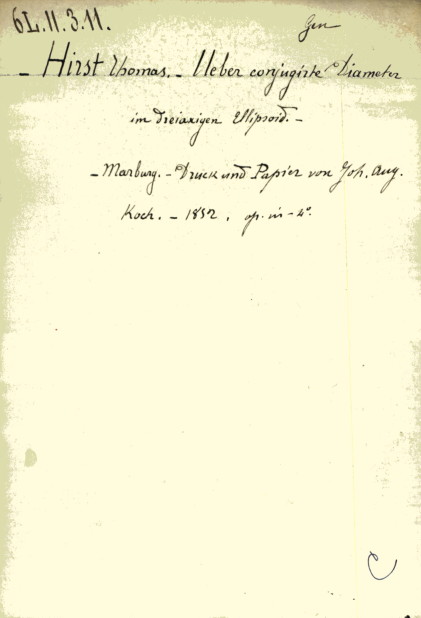 6L.11.3.11.
Gen
- Hirst Thomas. - Ueber conjugirte Diameter
im dreiaxigen Ellipsoid. -
- Marburg. - Druck und Papier von Joh. Aug.
Koch. - 1852, op. in - 4°.
C